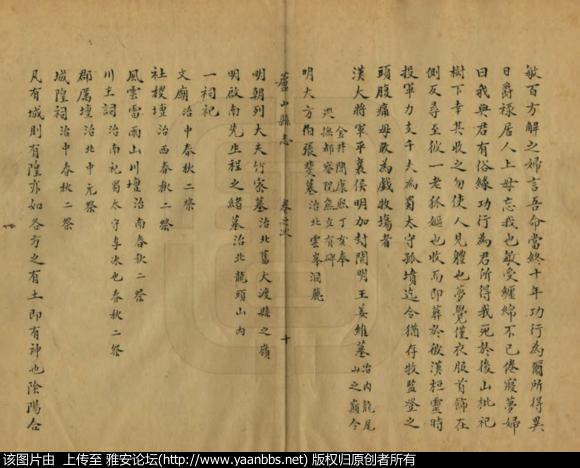 敏百方解之婦言吾命當終十年功行為爾所得異
日爵祿居人上毋忘我也敏受纏綿不已倦寢夢婦
曰我與君有俗緣功行為君所得我死於後山枇杷
樹下幸其收之勿使人見軆也夢覺僅衣服首飾在
側反尋至彼一老狐嫗也收而即葬於敏漢桓靈時
投軍力支千夫為蜀太守孤墳迄今猶存牧監登之
頭腹痛毋敢為戲牧塲者
漢大將軍平襄侯明加封開明王姜維墓治內龍尾山之巔今
金井開康熙丁亥奉
撫部察院熊立有碑
明大方伯張斐墓治北雲峯洞麓
蘆山縣志
卷之次
十
明朝列大夫竹家墓治北舊大渡縣之嶺
明啟南先生程之緒墓治北龍頭山內
一祠祀
文廟治中春秋二祭
社稷壇治西春秋二祭
風雲雷雨山川壇治南春秋二祭
川主詞治南祀蜀太守李冰也春秋二祭
郡厲壇治北中元祭
城隍祠治中春秋二祭
凡有城則有隍亦如各方之有土即有神也陰陽合
该图片由 上传至 雅安论坛(http://www.yaanbbs.net) 版权归原创者所有